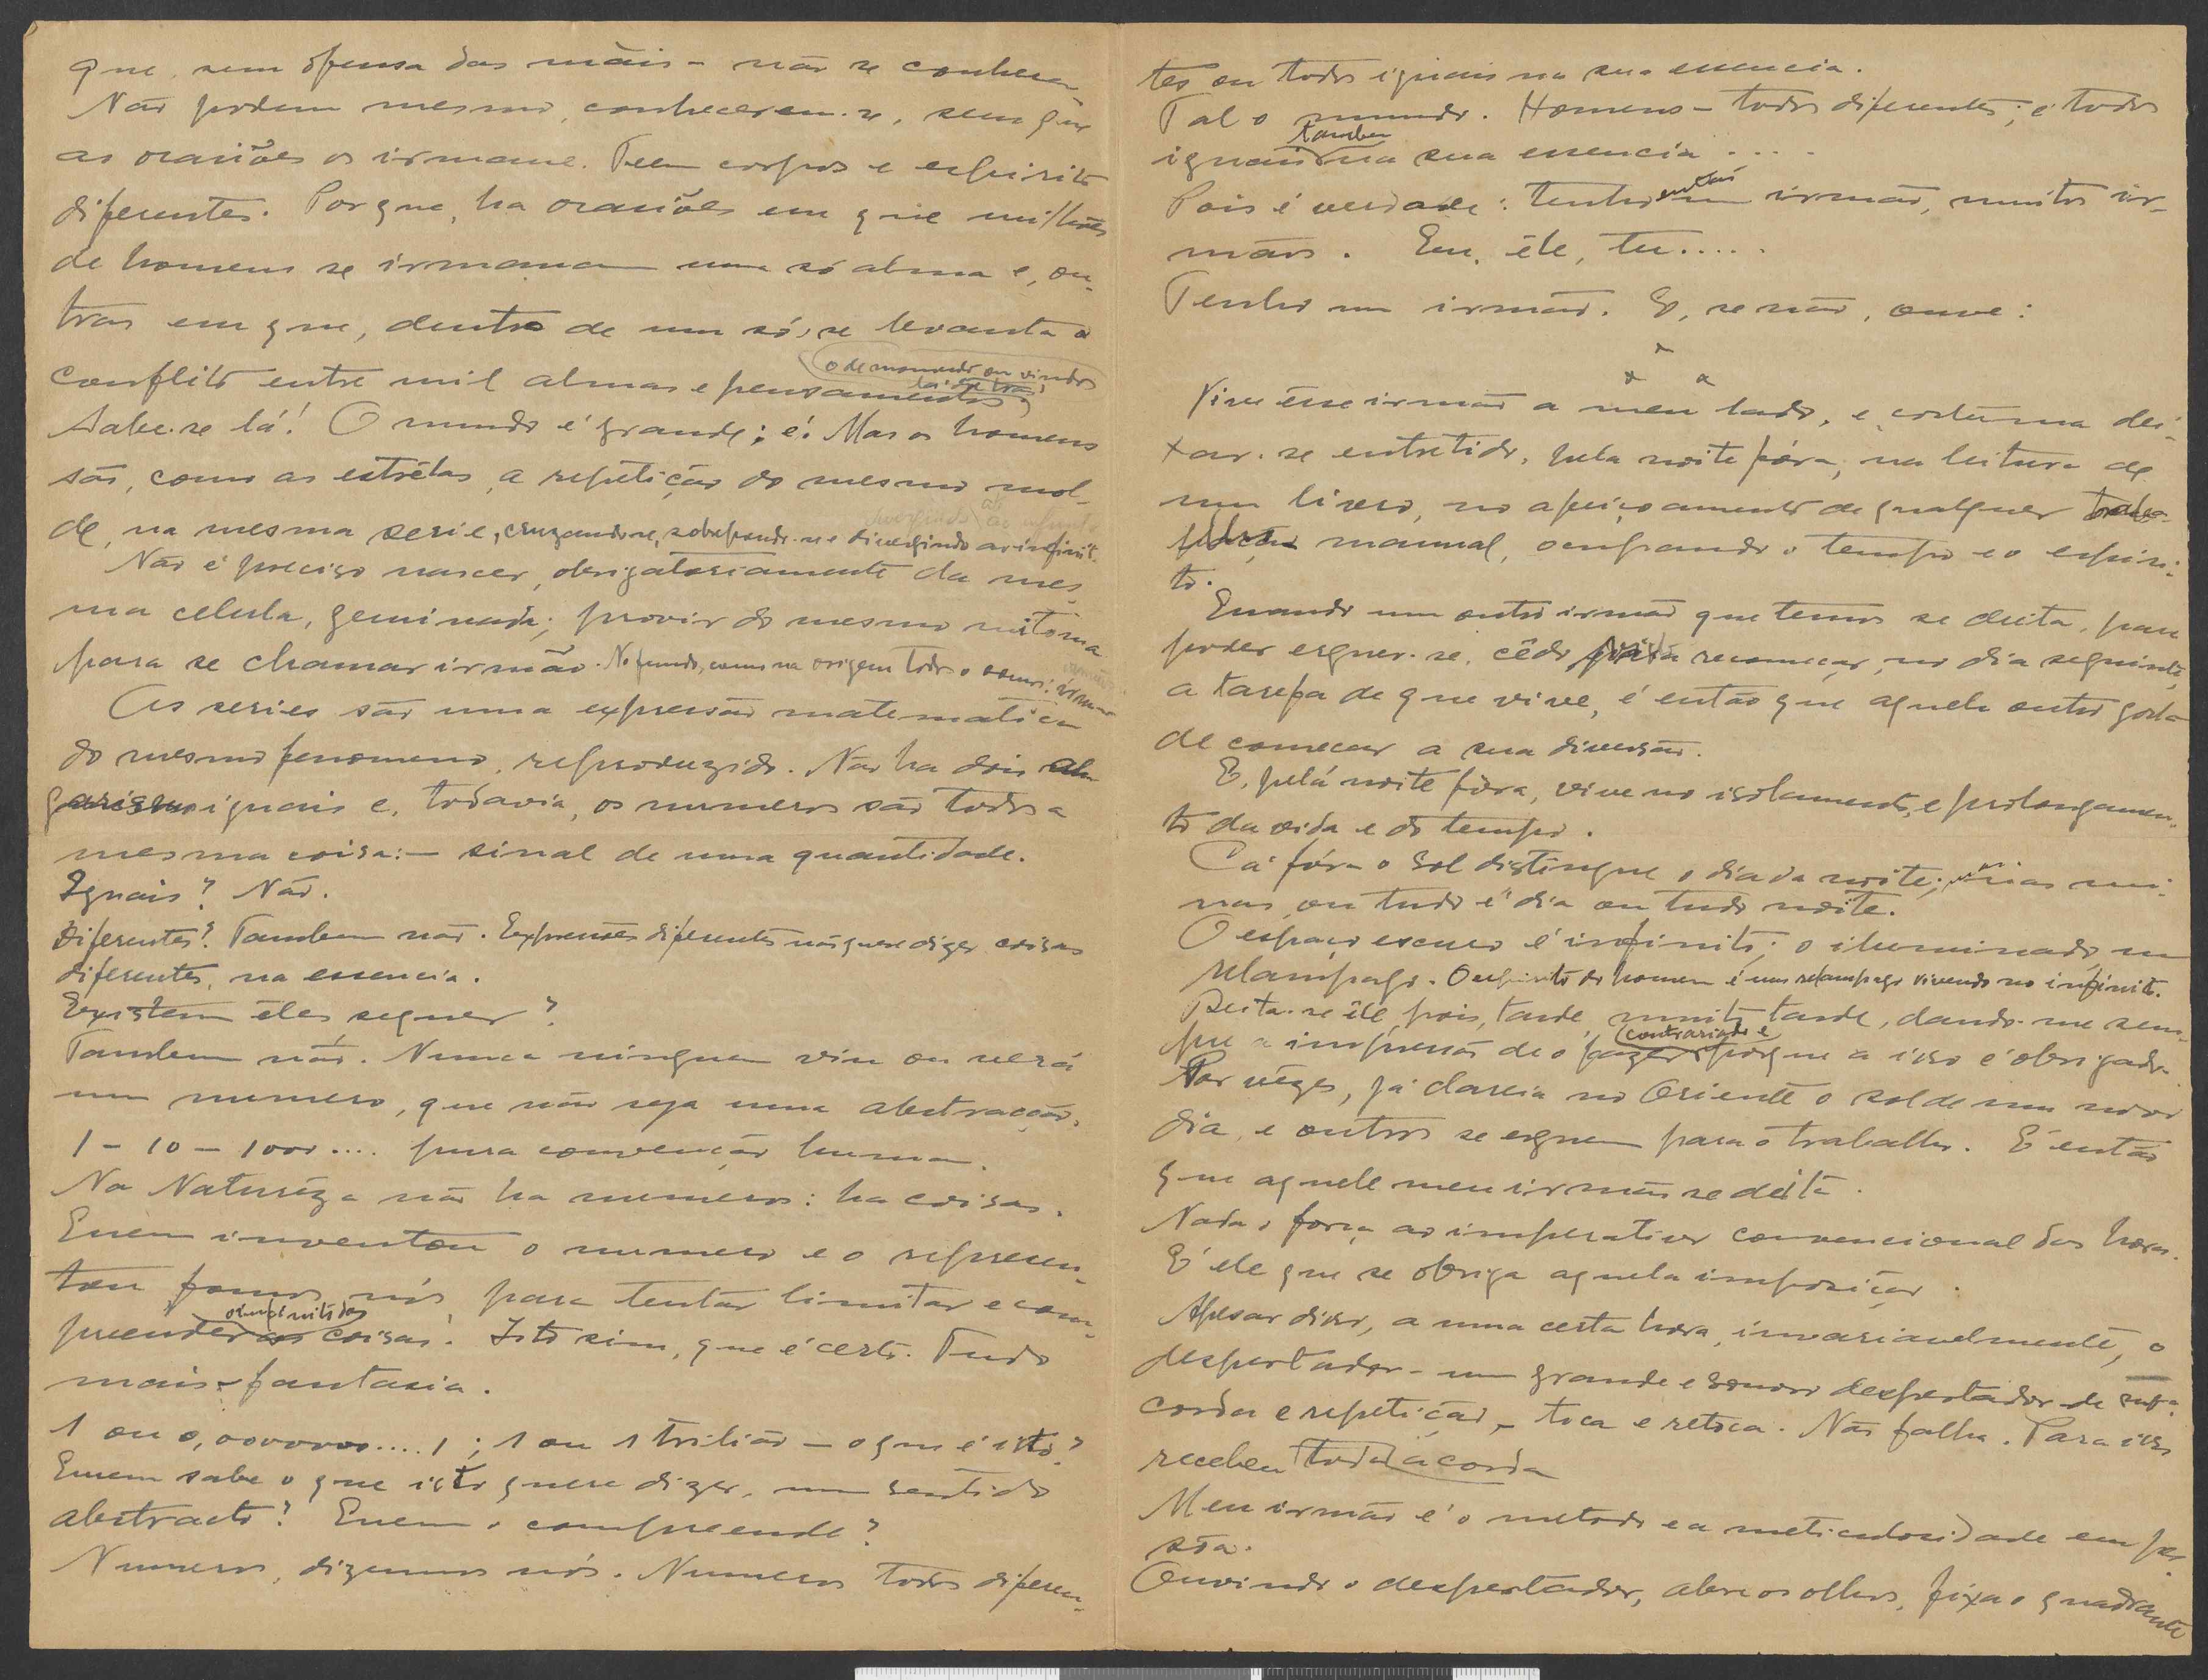 que, sem ofensa das mãis - não se conheça
Não podem mesmo, conhecerem-se, sem que
as ocasiões os irmane. Teem corpos e espirito
diferentes. Porque, ha ocasiões em que milhões
de homens se irmanam numa só alma e, ou-
tras em que, dentro de um só, se levanta o
conflito entre mil almas e pensamentos,
o de momento ou vindos
lá de traz
Sabe-se lá! O mundo é grande; é. Mas os homens
são, como as estrêlas, a repetição do mesmo mol-
de, na mesma serie, cruzando-se, sobrepondo-se e divergindo ao infinito.
Não é preciso nascer, obrigatoriamente da mes-
ma celula, geminada; provir do mesmo
para se chamar irmão. No fundo, como na origem todos o somos: irmãos
As series são uma expressão matematica
do mesmo fenomeno, reproduzido. Não ha dois al-
garismos iguais e, todavia, os numeros são todos a
mesma coisa: - sinal de uma quantidade.
Iguais? Não.
Diferentes? Tambem não. Expressões diferentes não quere dizer coisas
diferentes, na essencia.
Existem êles, sequer?
Tambem não. Nunca ninguem viu ou verá
um numero, que não seja uma abstracção.
1 - 10 - 1000 .... pura convenção humana.
Na Naturêza não ha numeros: ha coisas.
Quem inventou o numero e o represen-
tou fomos nós, para tentar limitar e com-
preender as coisas. Isto sim, que é certo. Tudo
o infinito das
mais - fantasia.
1 ou 0,0000000....1; 1 ou 1 trilião - o que é isto?
Quem sabe o que isto quere dizer, num sentido
abstracto? Quem o compreende?
Numeros, dizemos nós. Numeros todos diferen-
tes ou todos iguais na sua essencia.
Tal o mundo. Homens - todos diferentes; e todos
tambem
iguais na sua essencia ....
Pois é verdade: tenho então um irmão, muitos ir-
mãos. Eu, êle, tu.....
Tenho um irmão. E, se não, ouve:
x
x x
Vive êsse irmão a meu lado, e costuma dei-
xar-se entretido, pela noite fóra, na leitura de
um livro, no afeiçoamento de qualquer
manual, ocupando o tempo e o espiri-
to.
Quando um outro irmão que temos se deita, para
poder erguer-se, cêdo, para recomeçar, no dia seguinte,
a tarefa de que vive, é então que aquele outro gosta
de começar a sua diversão.
E, pela noite fóra, vive no isolamento, e prolongamen-
to da vida e do tempo.
Cá fóra o sol distingue o dia da noite; nas mi-
nas, ou tudo é dia ou tudo noite.
O espaço escuro é infinito; o iluminado, um
relampago. O espirito do homem é um relampago vivendo no infinito.
Deita-se êle, pois, tarde, muito tarde, dando-me sem-
pre a impressão de o fazer porque a isso é obrigado.
contrariado e
Por vêzes, já clareia no Oriente o sol de um novo
dia, e outros se erguem para o trabalho. E' então
que aquele meu irmão se deita.
Nada o força ao imperativo convencional das horas.
E' ele que se obriga aquela imposição.
Apesar disso, a uma certa hora, invariavelmente, o
despertador - um grande e sonoro despertador de
corda e repetição, - toca e retoca. Não falha. Para isso
recebeu toda a corda
Meu irmão é o metodo e a meticulosidade em pes-
sôa.
Ouvindo o despertador, abre os olhos, fixa o quadrante